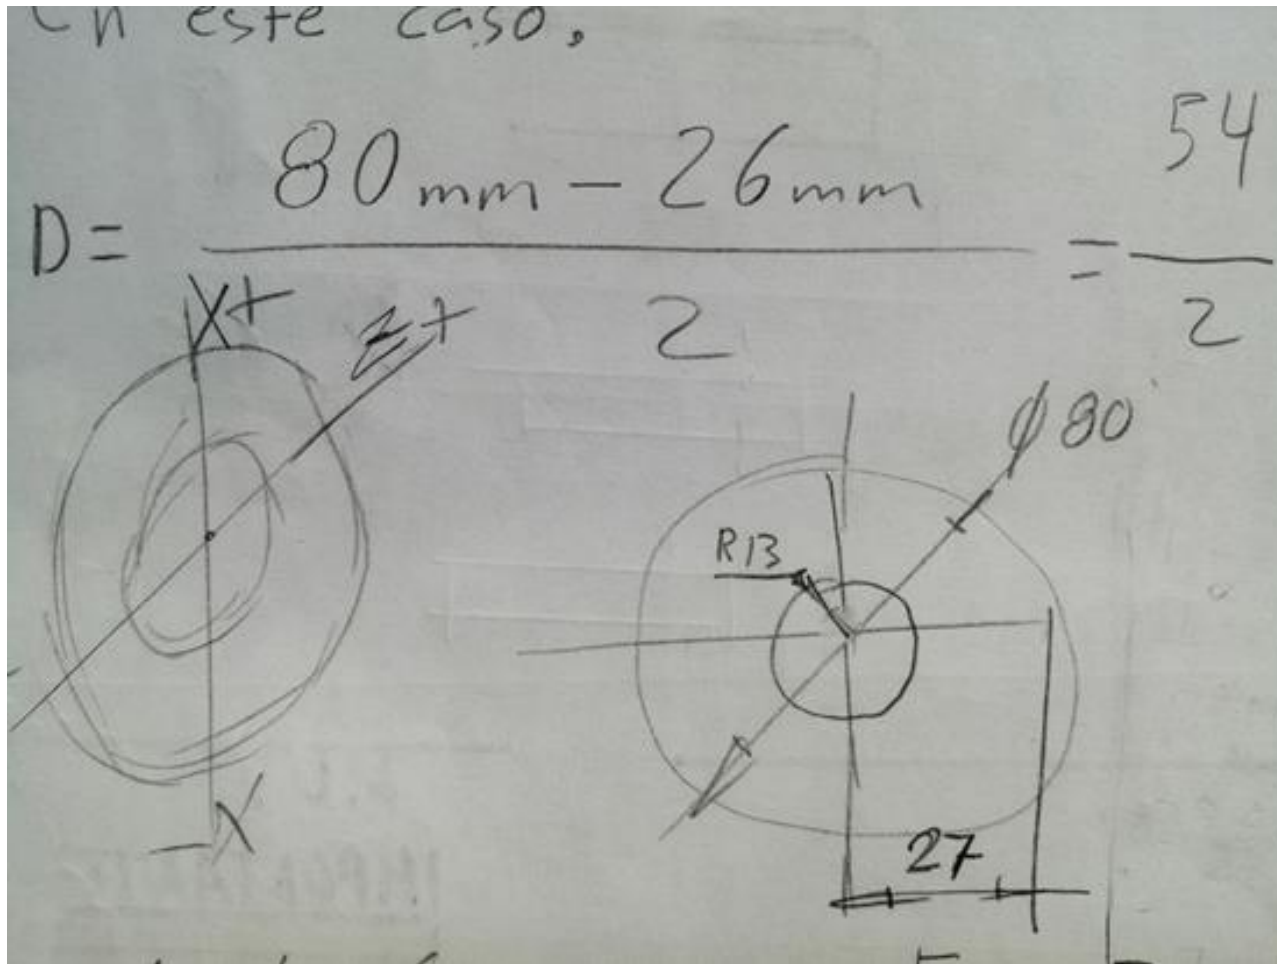 En este caso,
D = 80mm - 26mm / 2 = 54 / 2
X+
Z+
-X
R13
Ø 80
27